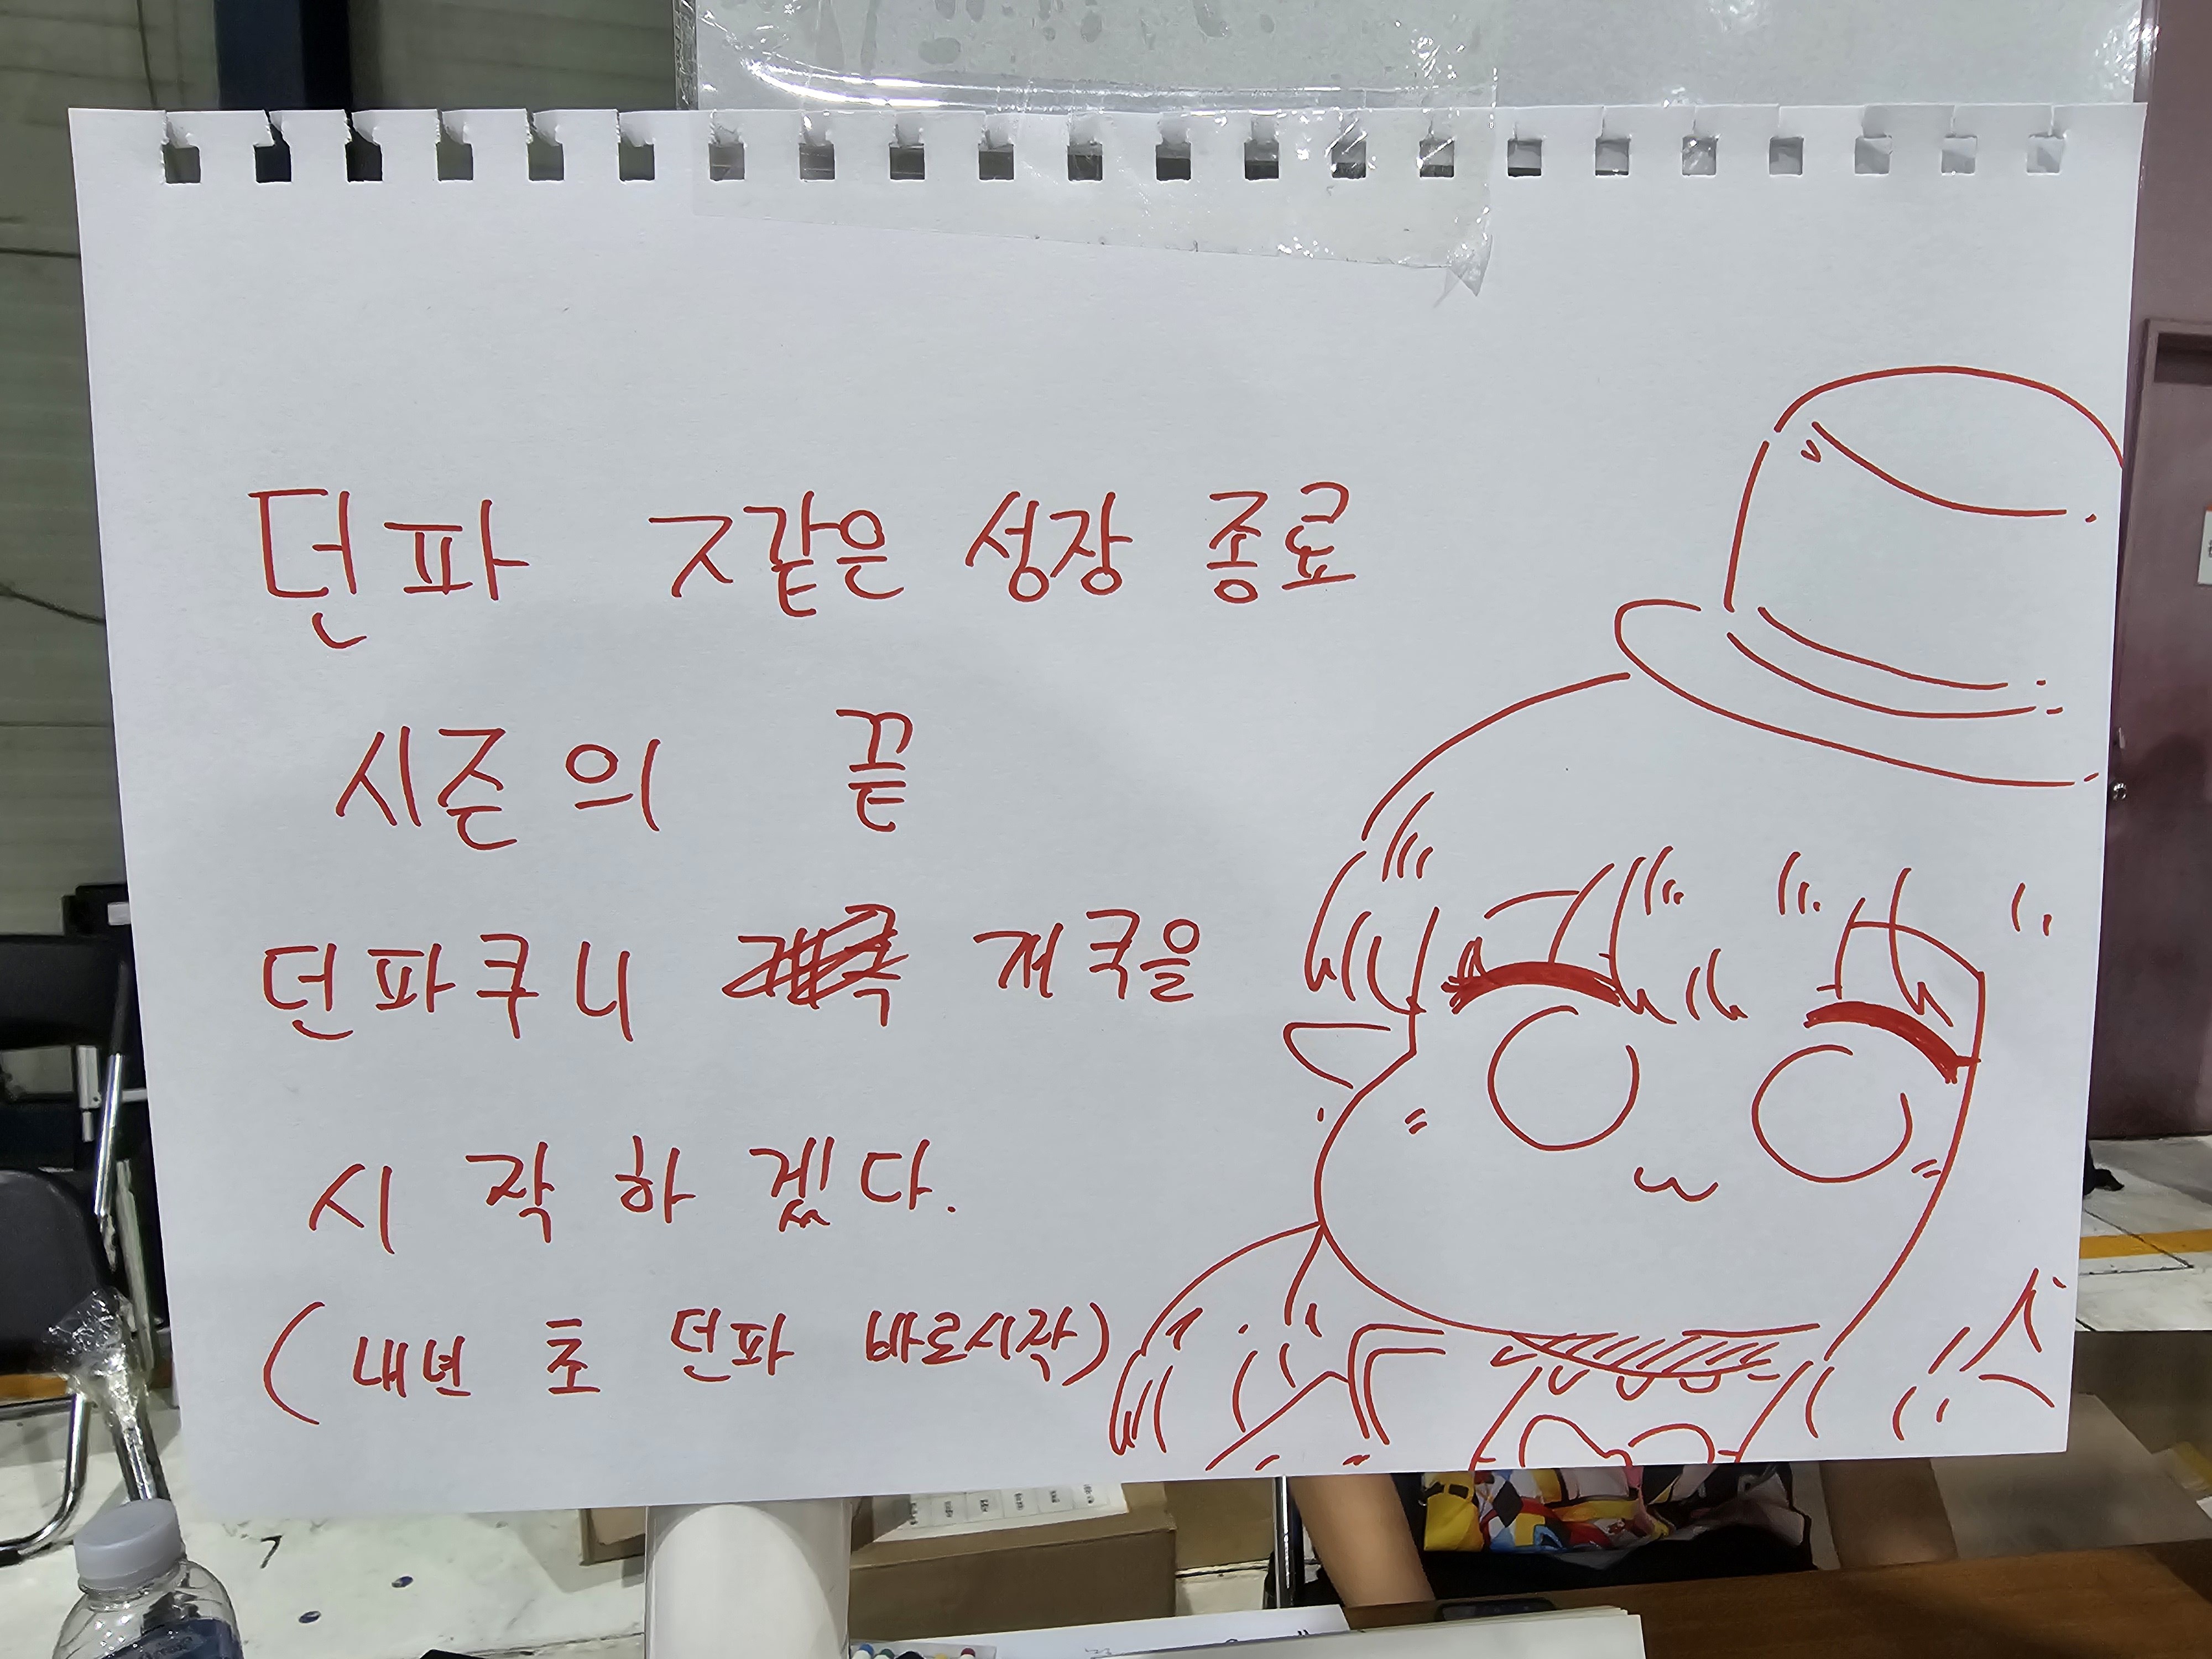 던파 ㅈ같은 성장 종료
시즌의 끝
던파쿠니 계쿡을
시작하겠다.
(내년 초 던파 바로시작)